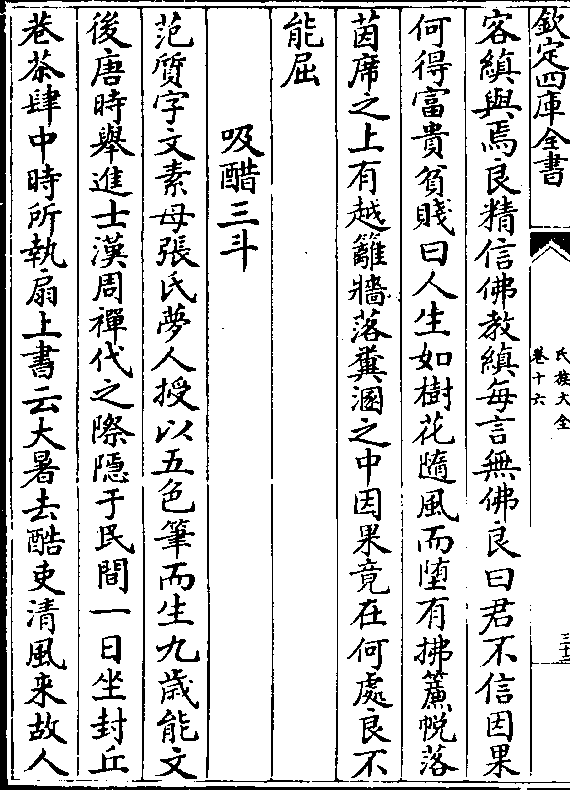 欽定四庫全書
氏族大全
卷十六
三十三
客縝與焉良精信佛教縝每言無佛良曰君不信因果
何得富貴貧賤曰人生如樹花隨風而墮有拂簾幌落
茵席之上有越籬牆落糞溷之中因果竟在何處良不
能屈
吸醋三斗
范質字文素母張氏夢人授以五色筆而生九歳能文
後唐時舉進士漢周禪代之際隱于民間一日坐封丘
巷茶肆中時所執扇上書云大暑去酷吏清風來故人